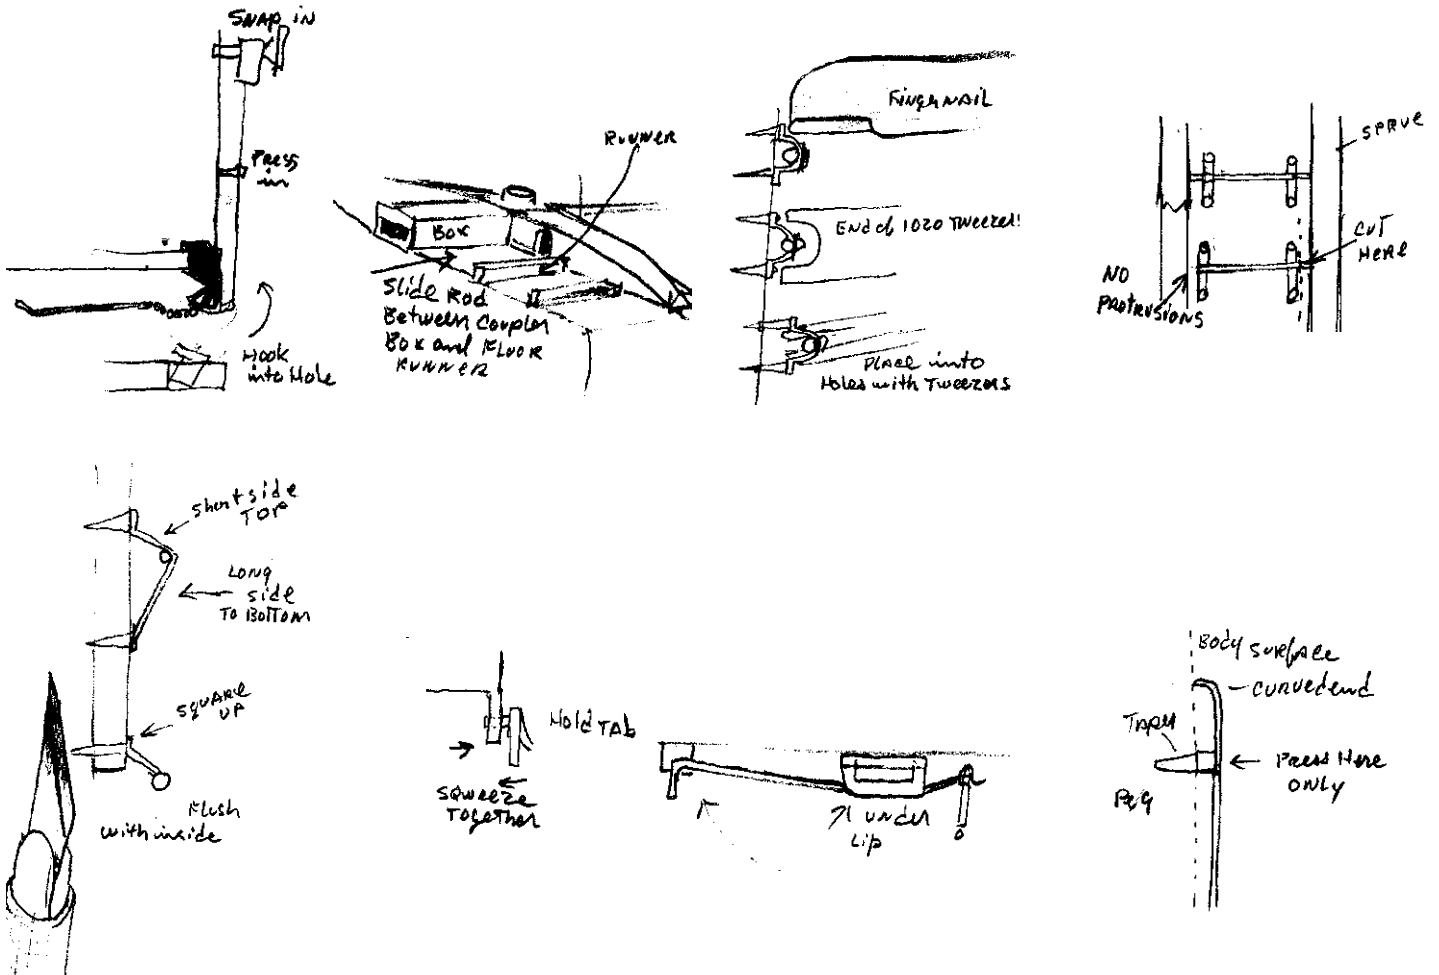 SNAP in
Press
in
Hook
into Hole
RUNNER
Box
Slide Rod
Between Coupler
Box and Floor
RUNNER
FingerNAIL
End of 1020 Tweezer!
PLACE into
Holes with Tweezers
SPRUE
CUT
HERE
NO
PROTRUSIONS
Short side
TOP
Long
side
To BoTTom
SQUARE
UP
Flush
with inside
Hold TAb
SQWEEZE
TOgether
under
Lip
Body Surface
curved end
TAPER
Peg
Press Here
ONLY